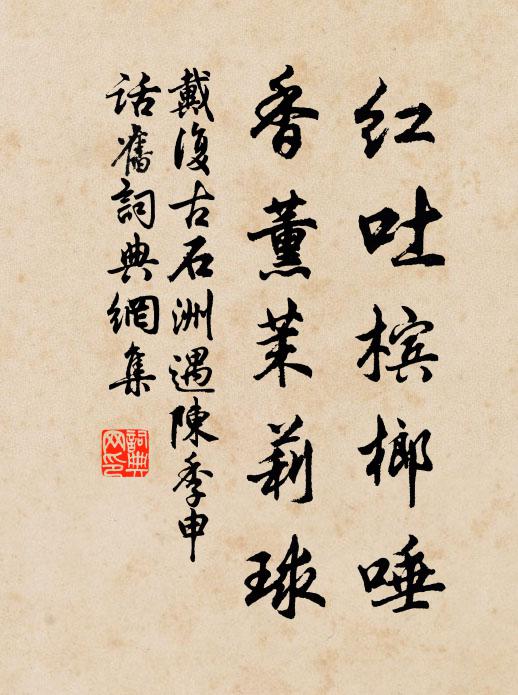 红吐槟榔唾
香薰茉莉球
戴復古石洲遇陳季申
話舊詞典網集
詞典网印